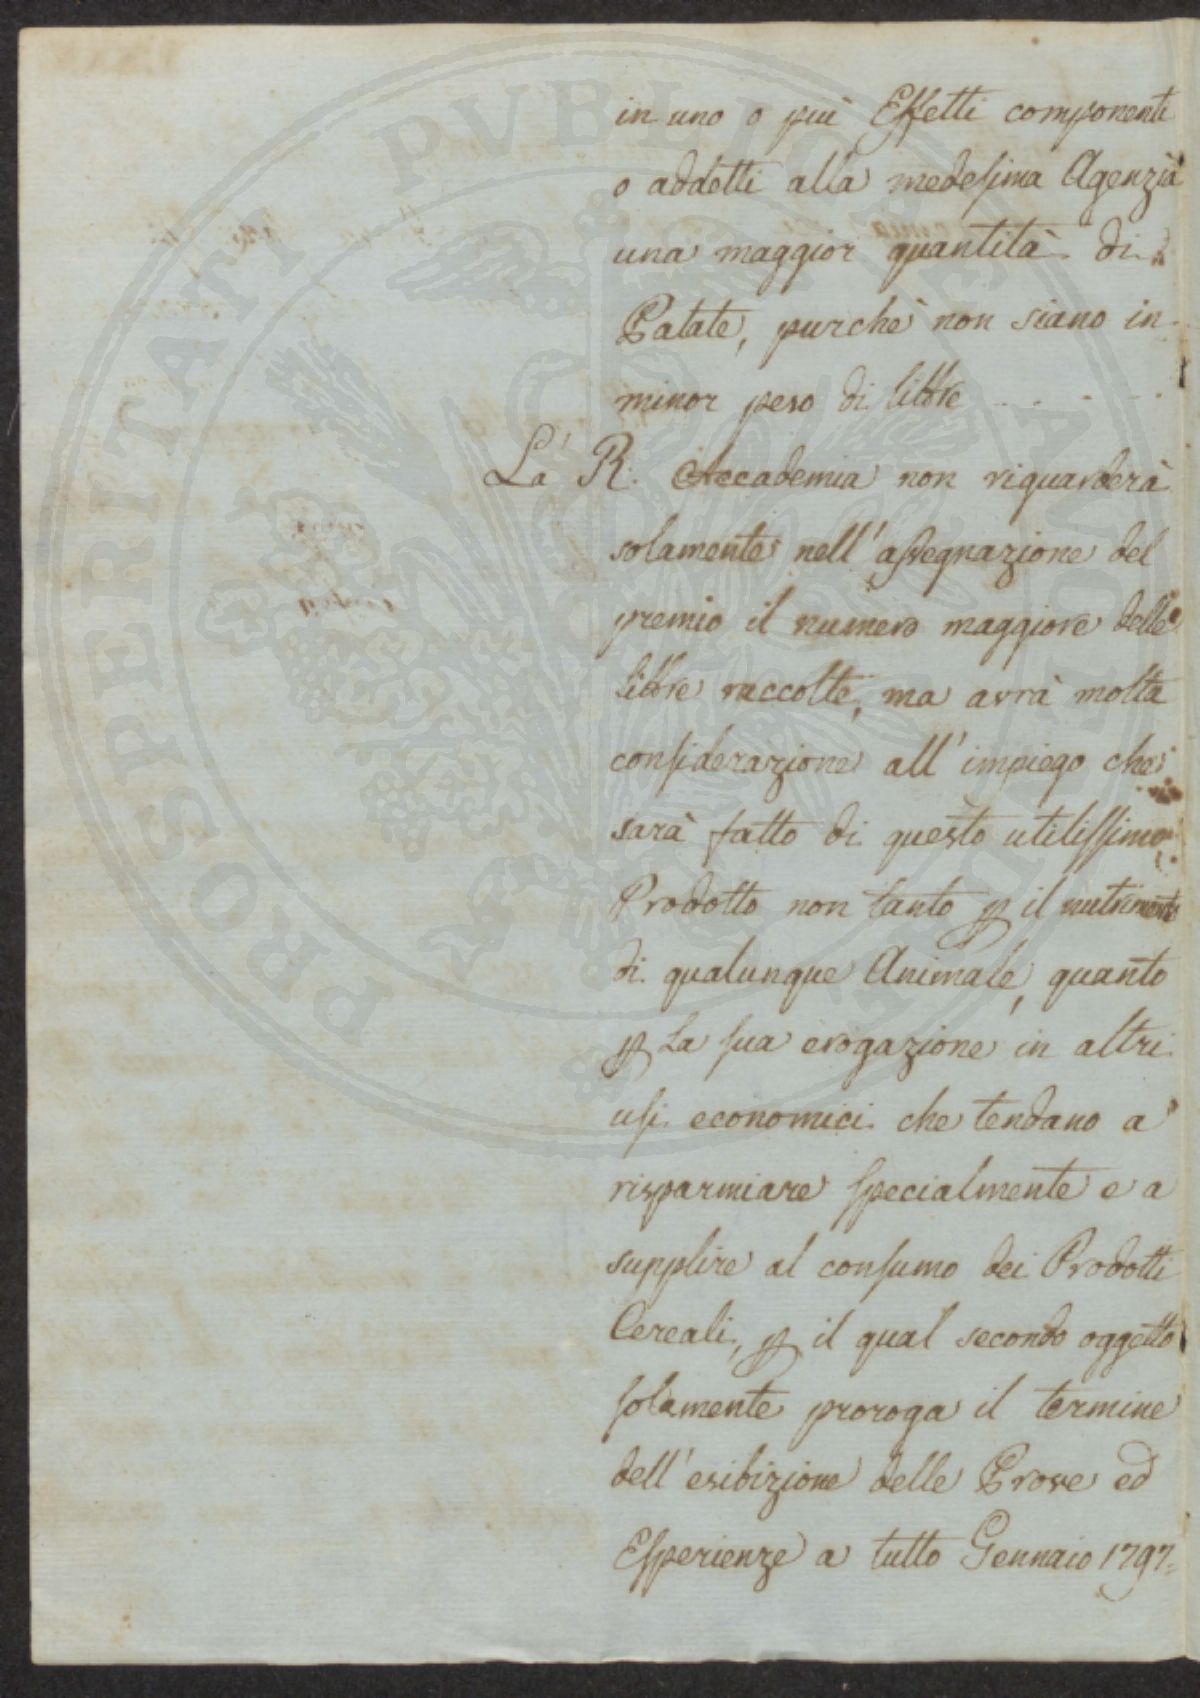 in uno o più Effetti componenti
o addetti alla medesima Agenzia
una maggior quantità di
Patate, purchè non siano in
minor peso di libbre . . . . .
La R. Accademia non riguarderà
solamente nell'assegnazione del
premio il numero maggiore delle
libbre raccolte, ma avrà molta
considerazione all'impiego che
sarà fatto di questo utilissimo
Prodotto non tanto ꝑ il nutrimento
di qualunque Animale, quanto
ꝑ la sua erogazione in altri
usi economici che tendano a
risparmiare specialmente e a
supplire al consumo dei Prodotti
Cereali, ꝑ il qual secondo oggetto
solamente proroga il termine
dell'esibizione delle Prove ed
Esperienze a tutto Gennaio 1797=
PROSPERITATI PVBLICAE AVGENDAE